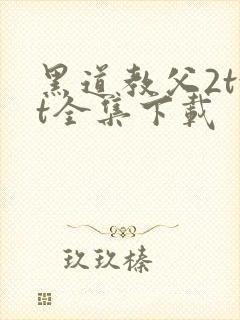 黑道教父2t
t全集下载
玖玖榛